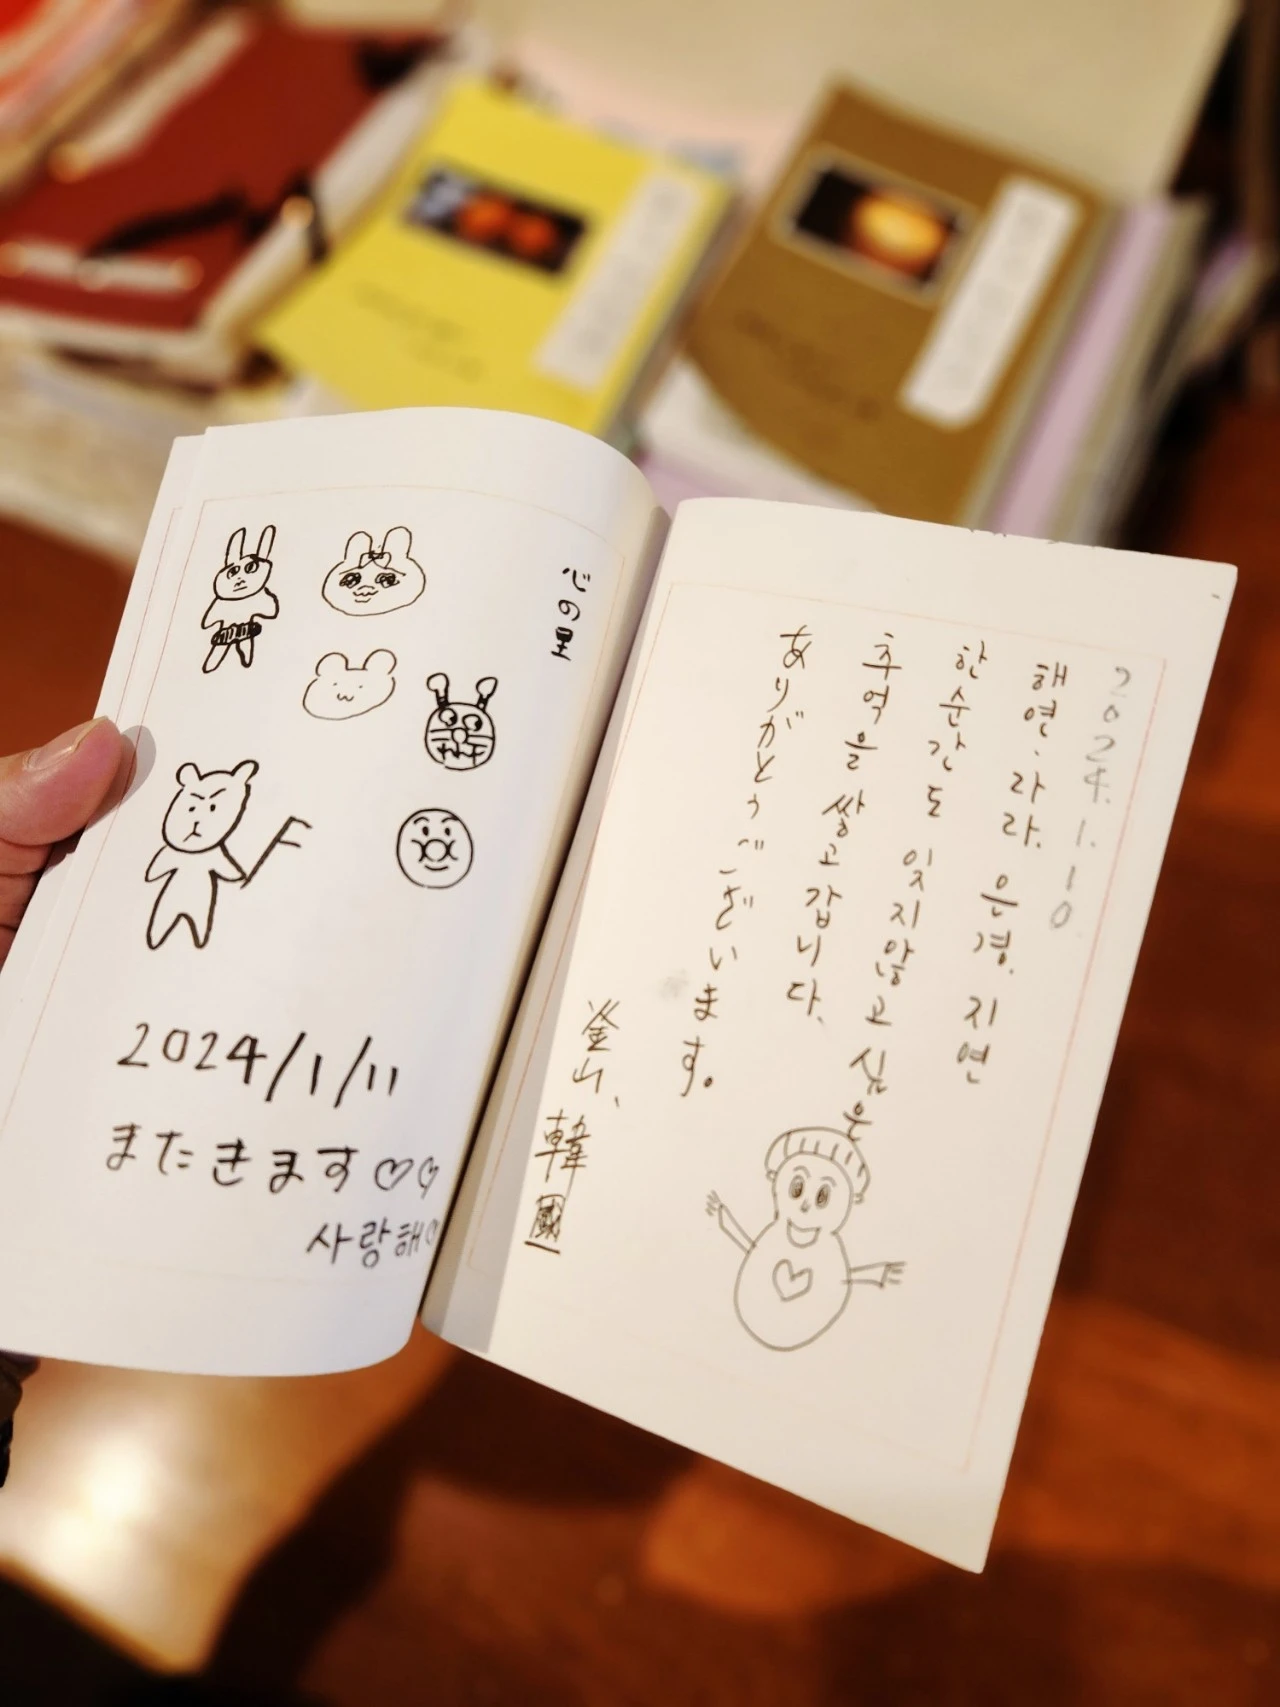 2024.1.10
해연、라라. 은경. 지연
한순간도 잊지않고 싶은
추억을 쌓고 갑니다.
ありがとうございます。
釜山、韓國
心の里
2024/1/11
またきます♡♡
사랑해♡